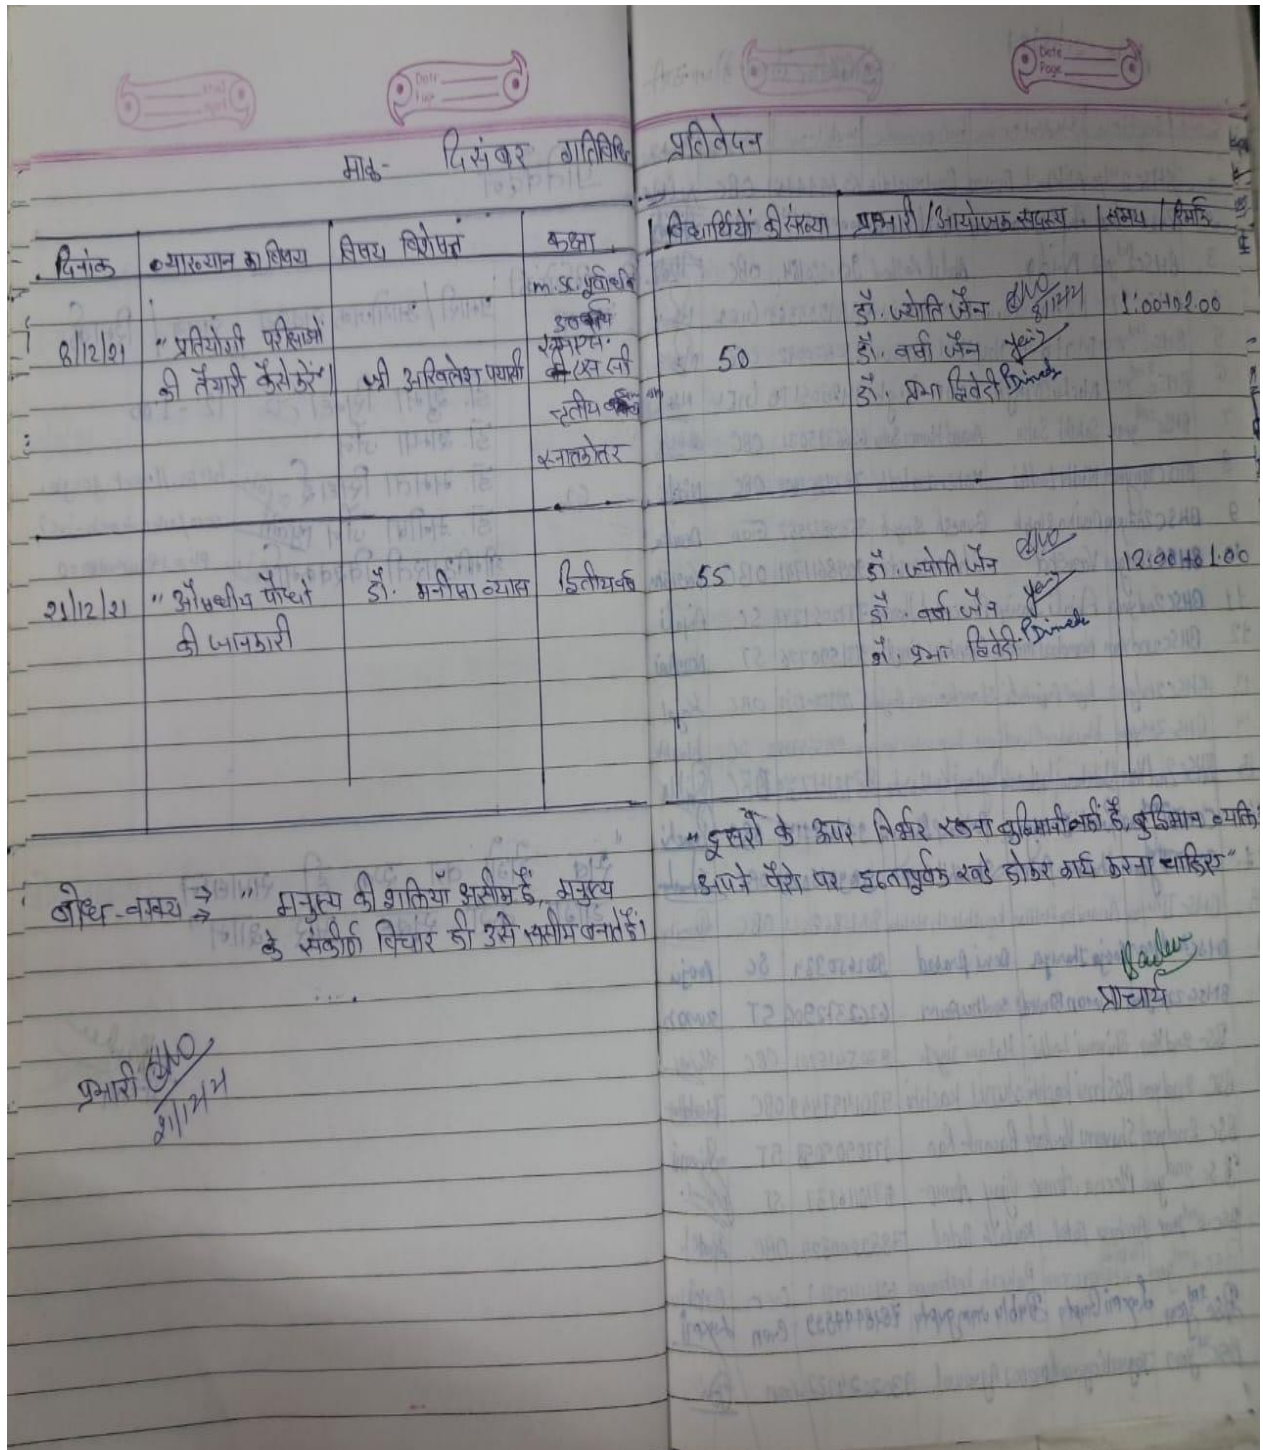 Date
Page
Date
Page
माह- दिसंबर गतिविधि प्रतिवेदन
दिनांक व्याख्यान का विषय विषय विशेषज्ञ कक्षा विद्यार्थियों की संख्या प्रभारी/आयोजक सदस्य समय
8/12/21 "प्रतियोगी परीक्षाओं
की तैयारी कैसे करें" श्री अखिलेश
m.sc. पूर्वार्ध
तृतीय
स्नातकोत्तर
50
डॉ. ज्योति जैन
डॉ. वर्षा जैन
डॉ. प्रभा द्विवेदी
1:00 to 2:00
21/12/21 "औषधीय पौधों डॉ. मनीषा व्यास द्वितीय वर्ष 55 डॉ. ज्योति जैन 12:00 to 1:00
की जानकारी डॉ. वर्षा जैन
डॉ. प्रभा द्विवेदी
बोध-वाक्य ⇒ " मनुष्य की शक्तियाँ असीम हैं, मनुष्य
के संकीर्ण विचार ही उसे ससीम बनाते हैं।
"दूसरों के ऊपर निर्भर रहना बुद्धिमानी नहीं है, बुद्धिमान व्यक्ति
अपने पैरों पर दृढ़तापूर्वक खड़े होकर कार्य करना चाहिए"
प्राचार्य
प्रभारी